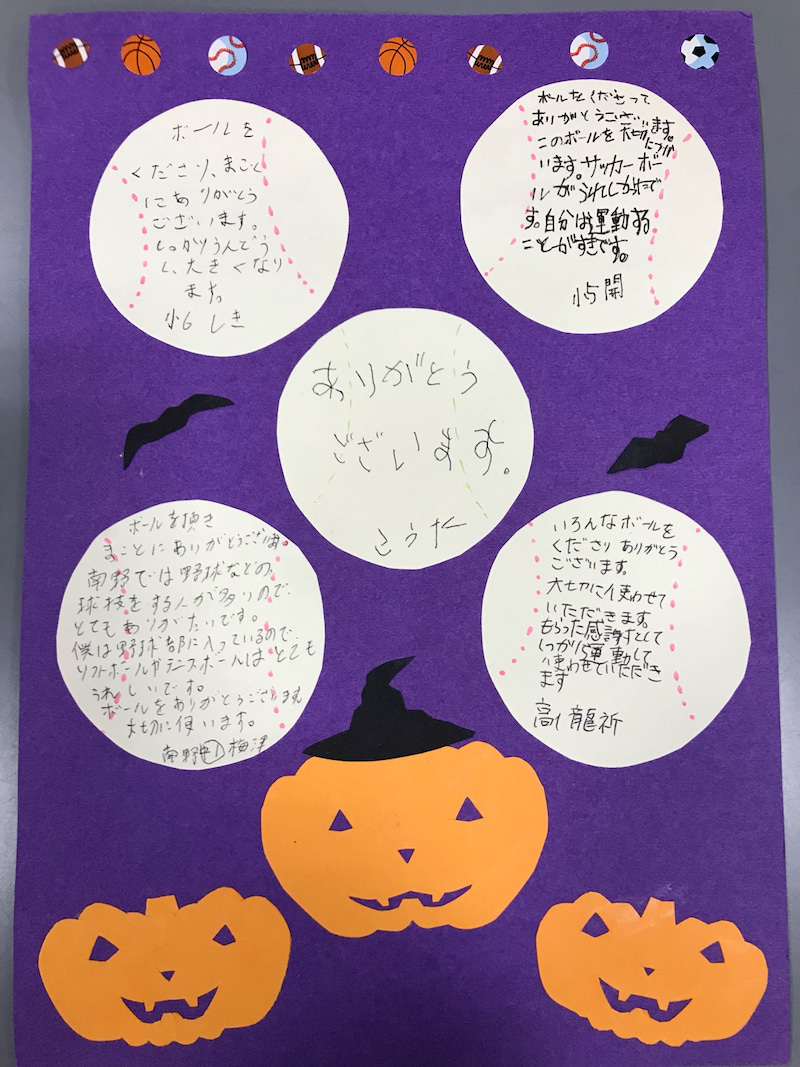 ボールを
くださり、まこと
にありがとう
ございます。
しっかりうんどう
し、大きくなり
ます。
小6 しき
ボールをくださって
ありがとうござい
ます。
このボールを大切に
つかいます。サッカーボー
ルがうれしかたで
す。自分は運動する
ことがすきです。
小5 開
ありがとう
ございます。
こうた
ボールを頂き
まことにありがとうございます。
南野では野球などの、
球技をする人が多いので、
とてもありがたいです。
僕は野球部に入っているので、
ソフトボールやテニスボールはとても
うれしいです。
ボールをありがとうございます
大切に使います。
南野中1 梅津
いろんなボールを
くださり ありがとう
ございます。
大切に使わせて
いただきます。
もらった感謝として
しっかり運動して
使わせていただき
ます
高1 龍祈